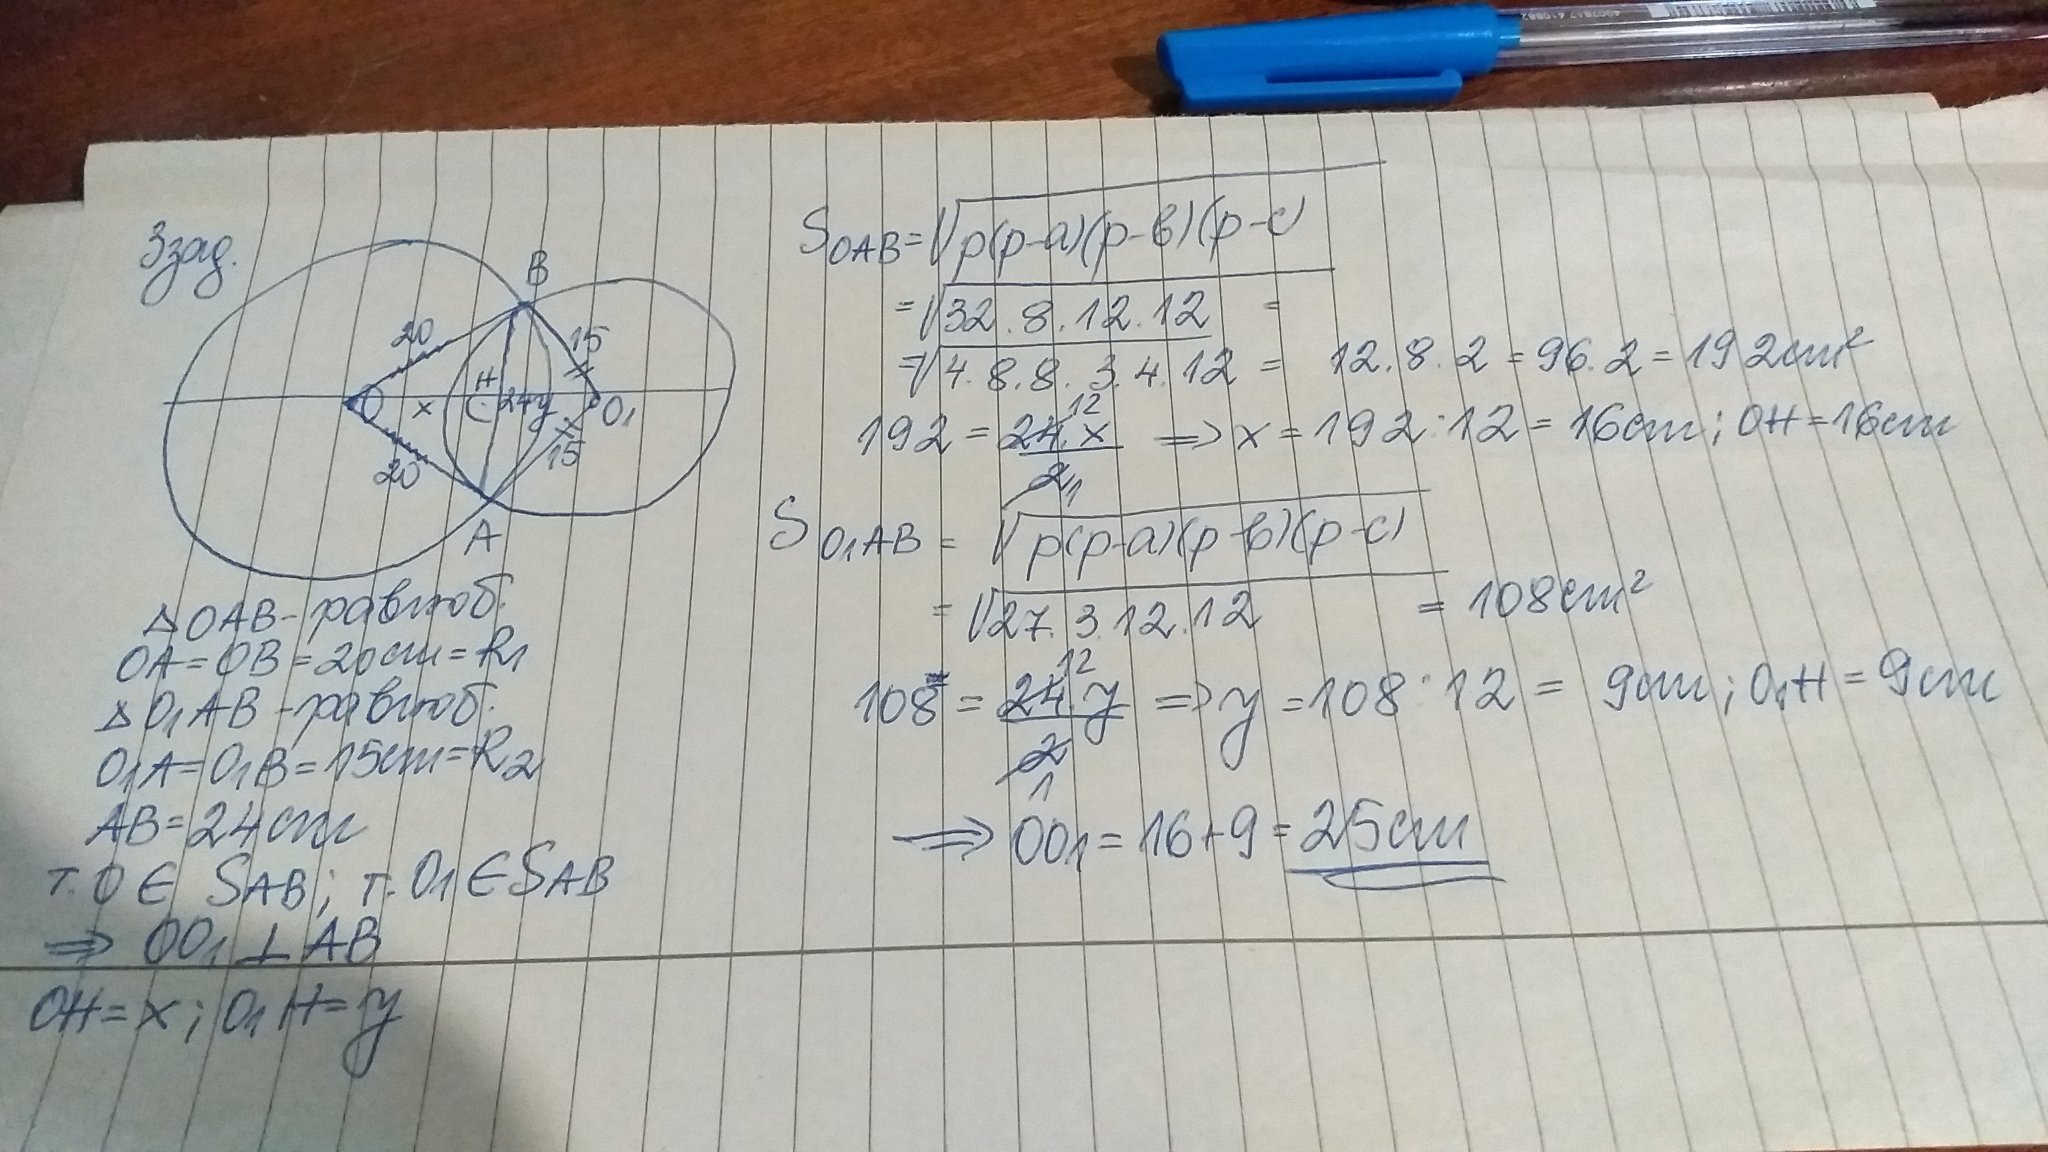 3зад.
B
20
15
H
O x C 24 y O₁
20
15
A
△OAB - равноб.
OA = OB = 20cm = R₁
△O₁AB - равноб.
O₁A = O₁B = 15cm = R₂
AB = 24cm
т. O ∈ S_AB; т. O₁ ∈ S_AB
⇒ OO₁ ⊥ AB
OH = x; O₁H = y
S_OAB = √p(p-a)(p-b)(p-c)
= √32.8.12.12 =
= √4.8.8.3.4.12 = 12.8.2 = 96.2 = 192cm²
12
192 = 24.x/2 ⇒ x = 192:12 = 16cm; OH = 16cm
1
S_O₁AB = √p(p-a)(p-b)(p-c)
= √27.3.12.12 = 108cm²
12
108 = 24.y/2 ⇒ y = 108:12 = 9cm; O₁H = 9cm
1
⇒ OO₁ = 16+9 = 25cm